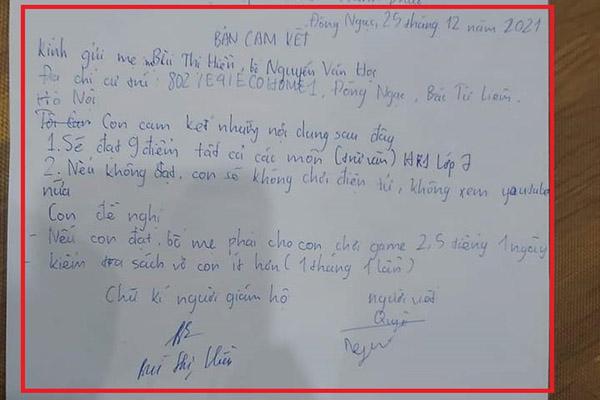 Đông Ngạc, 25 tháng 12 năm 2021
BẢN CAM KẾT
Kính gửi mẹ Bùi Thị Hiền, bố Nguyễn Văn Học
Địa chỉ cư trú: 802/E91ECOHOME1, Đông Ngạc, Bắc Từ Liêm,
Hà Nội
Con cam kết những nội dung sau đây
1. Sẽ đạt 9 điểm tất cả các môn (trừ văn) HK1 Lớp 7
2. Nếu không đạt, con sẽ không chơi điện tử, không xem youtube
nữa
Con đề nghị
- Nếu con đạt, bố mẹ phải cho con chơi game 2,5 tiếng 1 ngày
- kiểm tra sách vở con ít hơn (1 tháng 1 lần)
Chữ kí người giám hộ
người viết
Bùi Thị Hiền